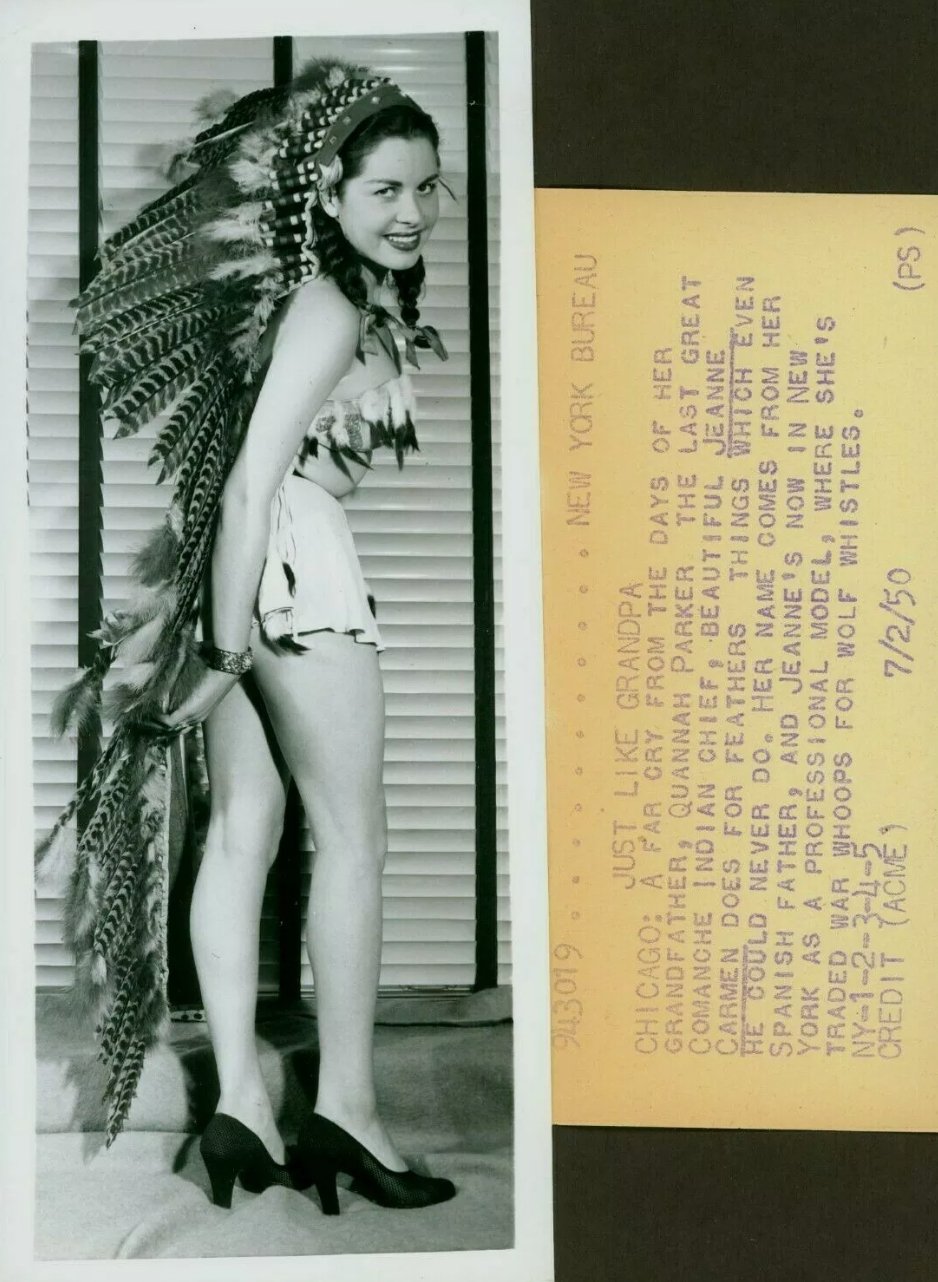 943079 . . . . . . . . . NEW YORK BUREAU
JUST LIKE GRANDPA
CHICAGO: A FAR CRY FROM THE DAYS OF HER
GRANDFATHER, QUANNAH PARKER THE LAST GREAT
COMANCHE INDIAN CHIEF, BEAUTIFUL JEANNE
CARMEN DOES FOR FEATHERS THINGS WHICH EVEN
HE COULD NEVER DO. HER NAME COMES FROM HER
SPANISH FATHER, AND JEANNE'S NOW IN NEW
YORK AS A PROFESSIONAL MODEL, WHERE SHE'S
TRADED WAR WHOOPS FOR WOLF WHISTLES.
NY-1-2-3-4-5
CREDIT (ACME) 7/2/50 (PS)